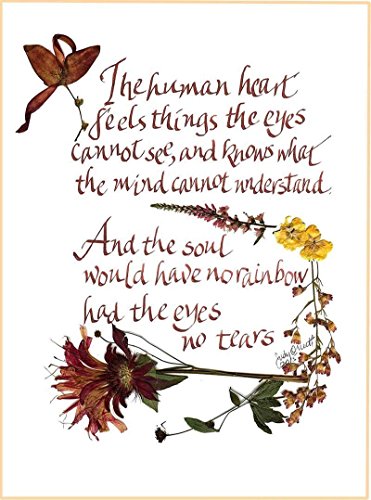 The human heart
feels things the eyes
cannot see, and knows what
the mind cannot understand.
And the soul
would have no rainbow
had the eyes
no tears